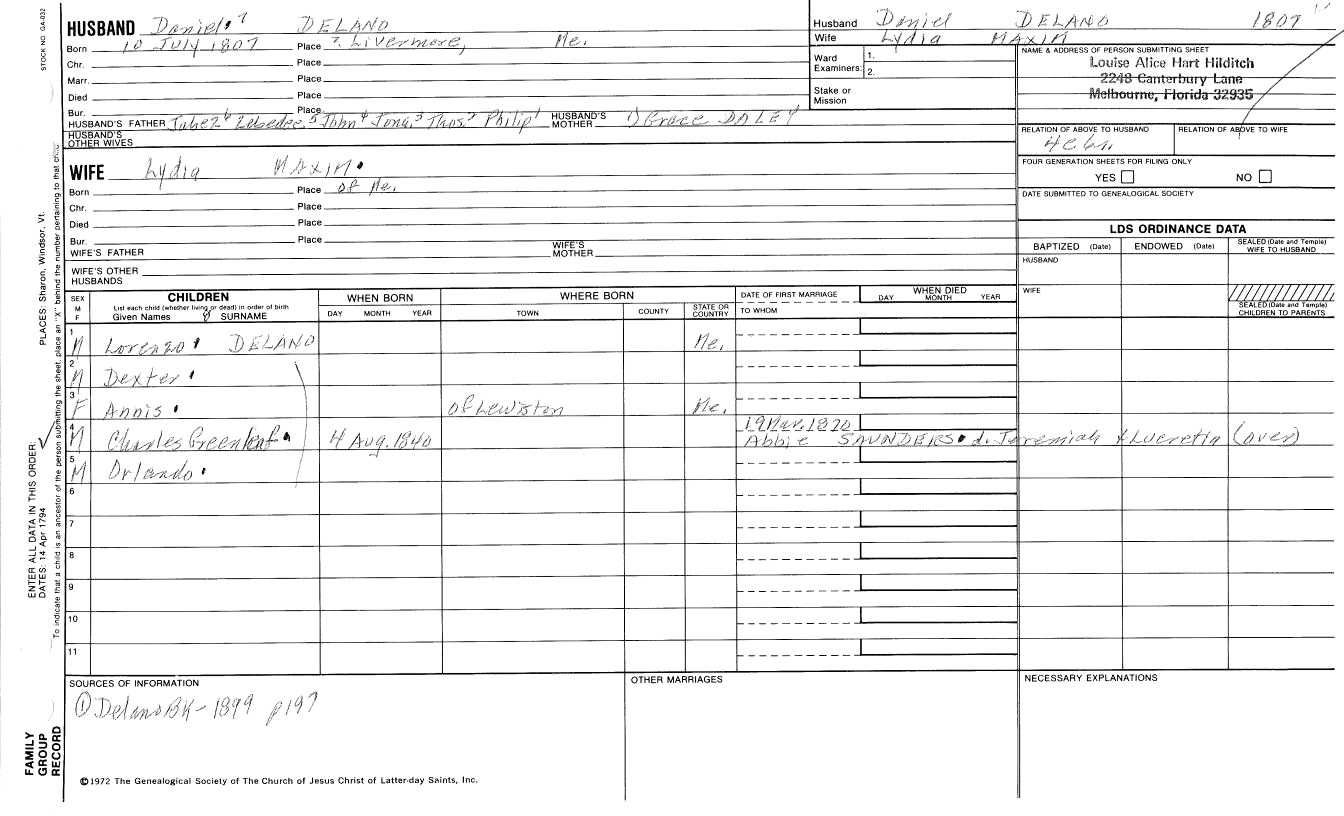 STOCK NO. GA-032
HUSBAND Daniel 7 DELANO
Born 10 July 1807 Place ? Livermore, Me.
Chr. Place
Marr. Place
Died Place
Bur. Place
HUSBAND'S FATHER Jabez 6 Zebedee, 5 John 4 Jona. 3 Thos. 2 Philip 1 HUSBAND'S MOTHER 1) Grace DALEY
HUSBAND'S OTHER WIVES
WIFE Lydia MAXIM
Born Place of Me.
Chr. Place
Died Place
Bur. Place
WIFE'S FATHER WIFE'S MOTHER
WIFE'S OTHER HUSBANDS
Husband Daniel DELANO 1807
Wife Lydia MAXIM
Ward Examiners: 1.
2.
Stake or Mission
NAME & ADDRESS OF PERSON SUBMITTING SHEET
Louise Alice Hart Hilditch
2248 Canterbury Lane
Melbourne, Florida 32935
RELATION OF ABOVE TO HUSBAND RELATION OF ABOVE TO WIFE
FOUR GENERATION SHEETS FOR FILING ONLY
YES NO
DATE SUBMITTED TO GENEALOGICAL SOCIETY
LDS ORDINANCE DATA
BAPTIZED (Date) ENDOWED (Date) SEALED (Date and Temple) WIFE TO HUSBAND
HUSBAND
WIFE
SEALED (Date and Temple) CHILDREN TO PARENTS
SEX M F CHILDREN WHEN BORN WHERE BORN DATE OF FIRST MARRIAGE WHEN DIED
List each child (whether living or dead) in order of birth
Given Names SURNAME DAY MONTH YEAR TOWN COUNTY STATE OR COUNTRY TO WHOM DAY MONTH YEAR
1 M Lorenzo DELANO Me.
2 M Dexter
3 F Annis of Lewiston Me.
4 M Charles Greenleaf 4 Aug. 1840 19 Mar. 1870
Abbie SAUNDERS d. Jeremiah & Lucretia (over)
5 M Orlando
6
7
8
9
10
11
SOURCES OF INFORMATION OTHER MARRIAGES NECESSARY EXPLANATIONS
① Delano BK - 1899 p197
©1972 The Genealogical Society of The Church of Jesus Christ of Latter-day Saints, Inc.
FAMILY GROUP RECORD
ENTER ALL DATA IN THIS ORDER:
DATES: 14 Apr 1794 PLACES: Sharon, Windsor, Vt.
To indicate that a child is an ancestor of the person submitting the sheet, place an "X" behind the number pertaining to that child.